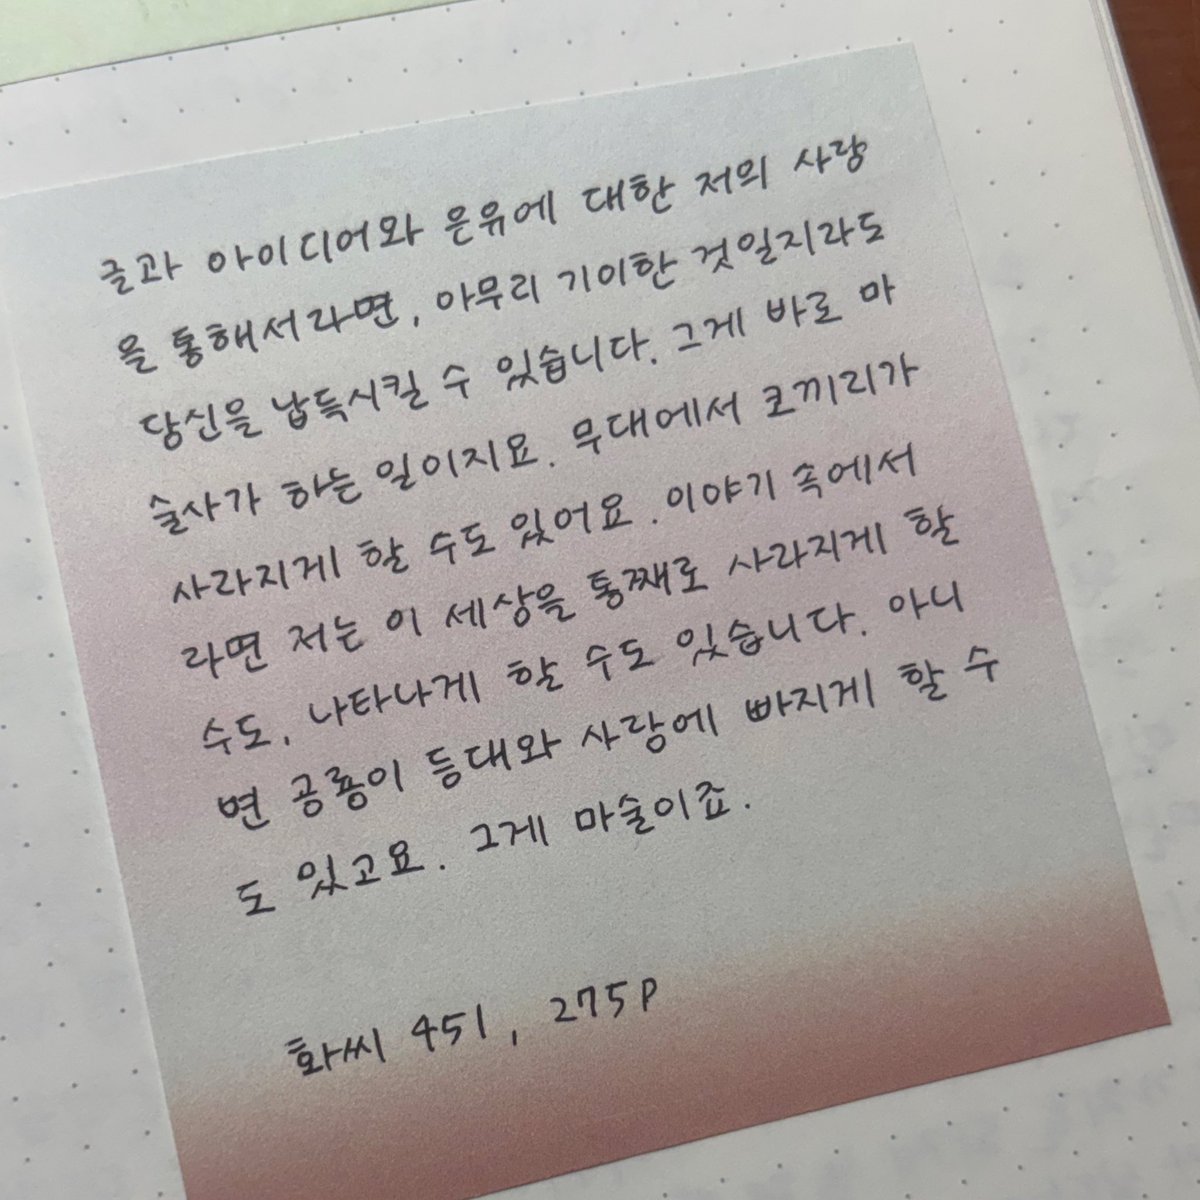 글과 아이디어와 은유에 대한 저의 사랑
을 통해서라면, 아무리 기이한 것일지라도
당신을 납득시킬 수 있습니다. 그게 바로 마
술사가 하는 일이지요. 무대에서 코끼리가
사라지게 할 수도 있어요. 이야기 속에서
라면 저는 이 세상을 통째로 사라지게 할
수도, 나타나게 할 수도 있습니다. 아니
면 공룡이 등대와 사랑에 빠지게 할 수
도 있고요. 그게 마술이죠.
화씨 451, 275p